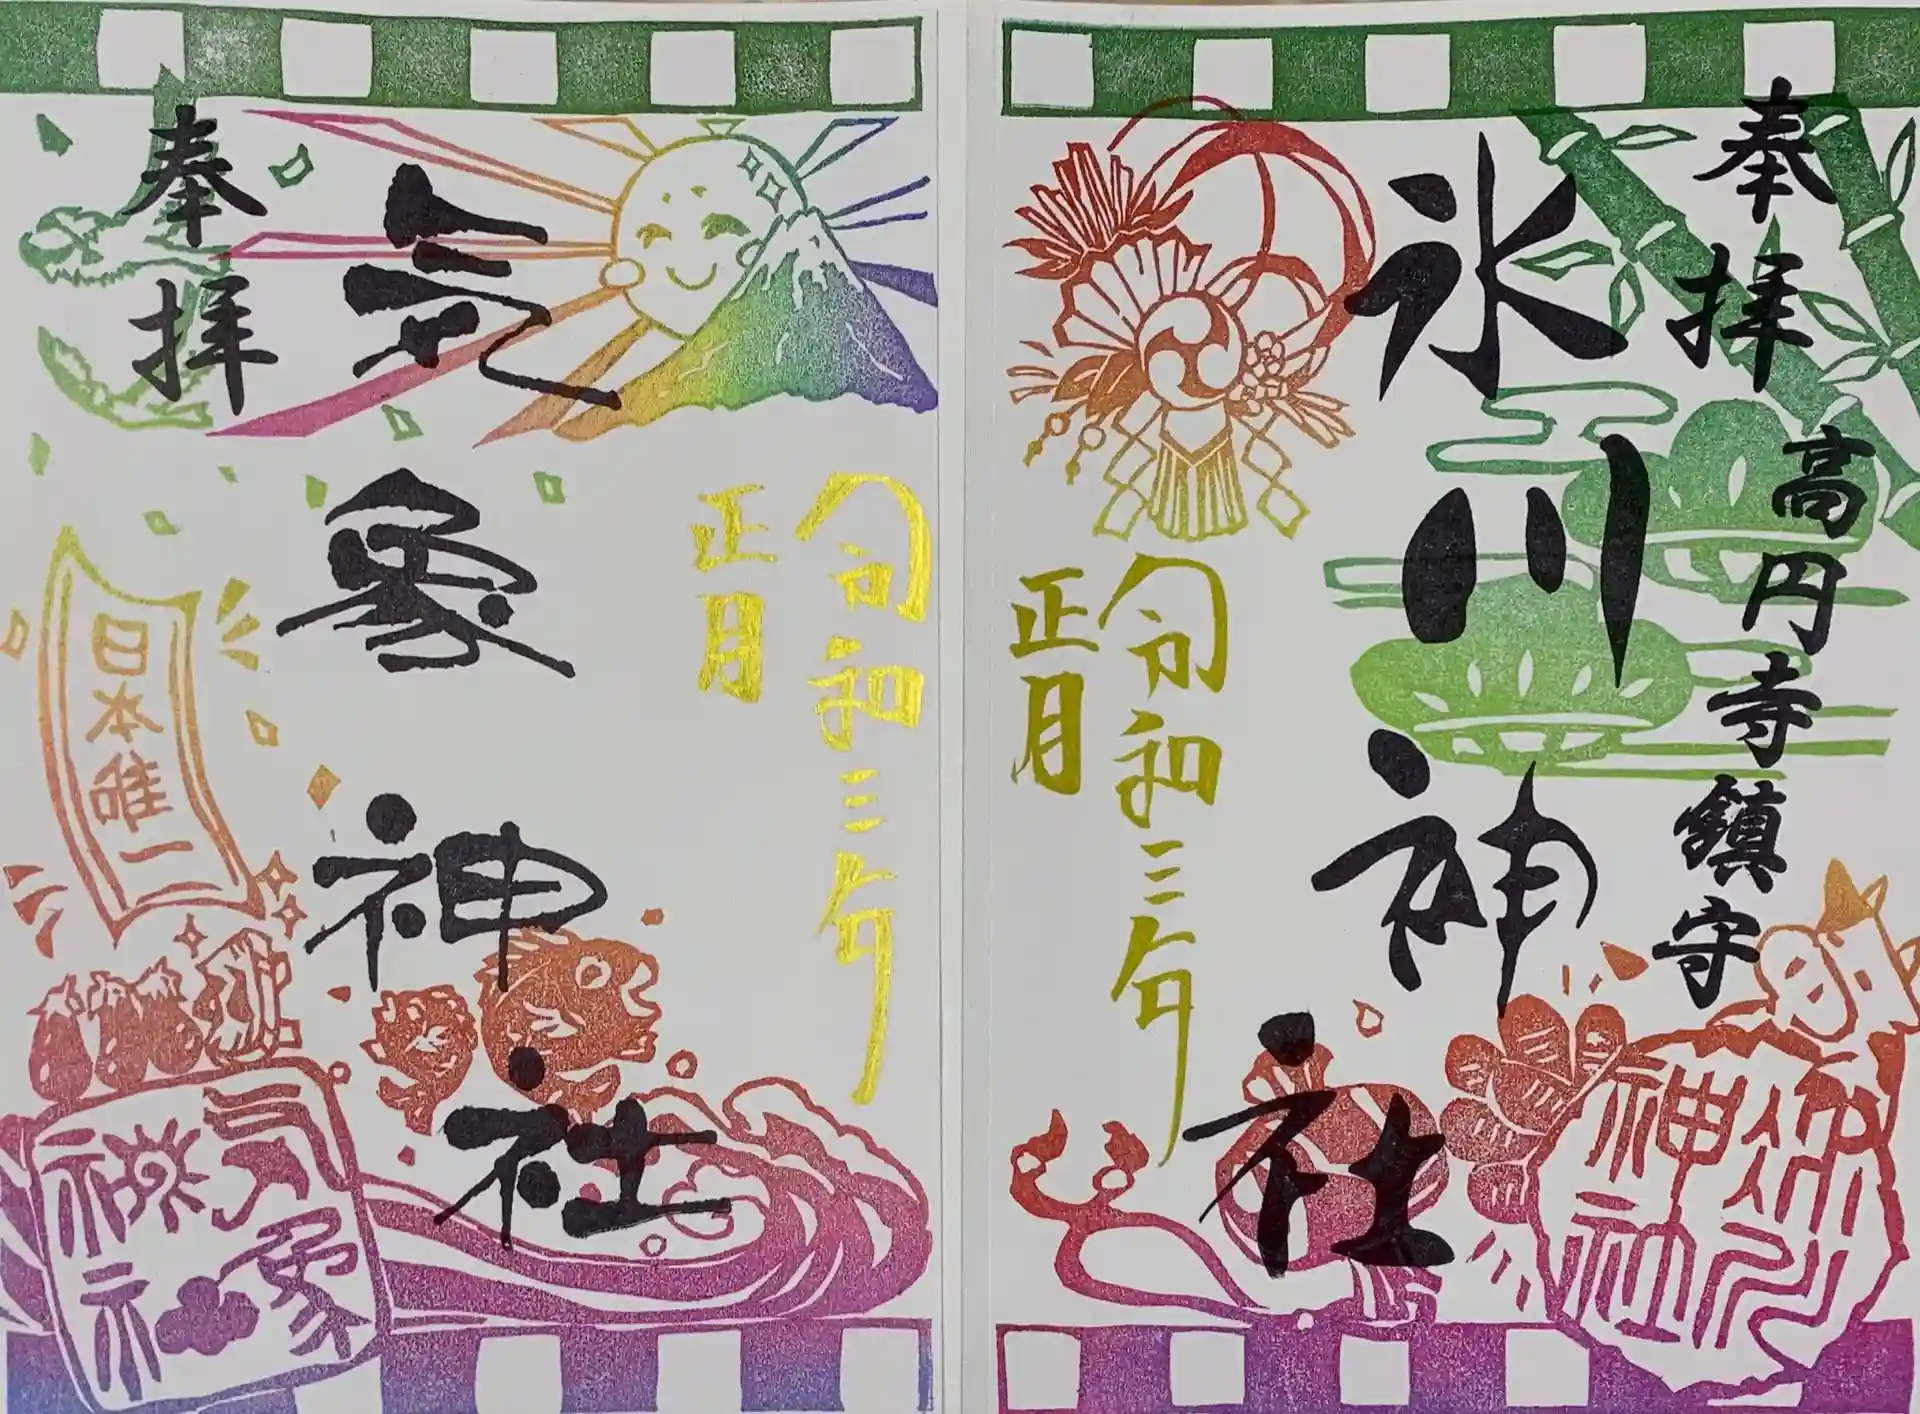 奉拝
高円寺鎮守
氷川神社
令和三年
正月
氷川神社
令和三年
正月
気象神社
奉拝
日本唯一
気象神社